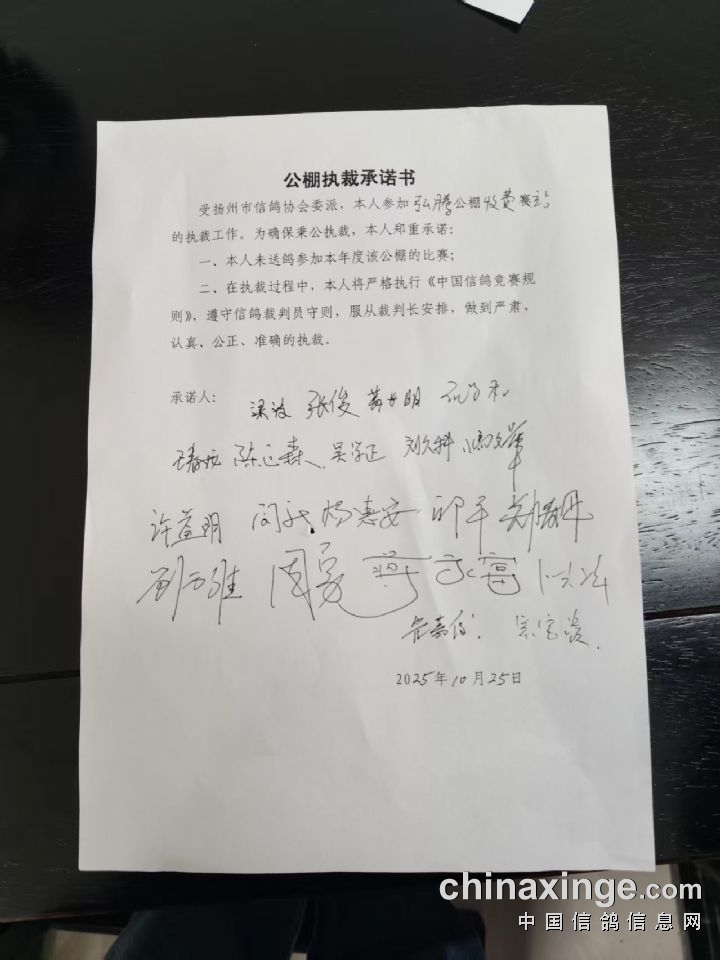 公棚执裁承诺书
受扬州市信鸽协会委派，本人参加弘腾公棚收费赛站
的执裁工作。为确保秉公执裁，本人郑重承诺：
一、本人未送鸽参加本年度该公棚的比赛；
二、在执裁过程中，本人将严格执行《中国信鸽竞赛规
则》，遵守信鸽裁判员守则，服从裁判长安排，做到严肃、
认真、公正、准确的执裁。
承诺人：
梁波 张俊
陈正森 吴学正 刘久科
许益明 杨惠安 邱平
周勇 蒋永富
宗宝贵
2025年10月25日
chinaxinge.com
中国信鸽信息网